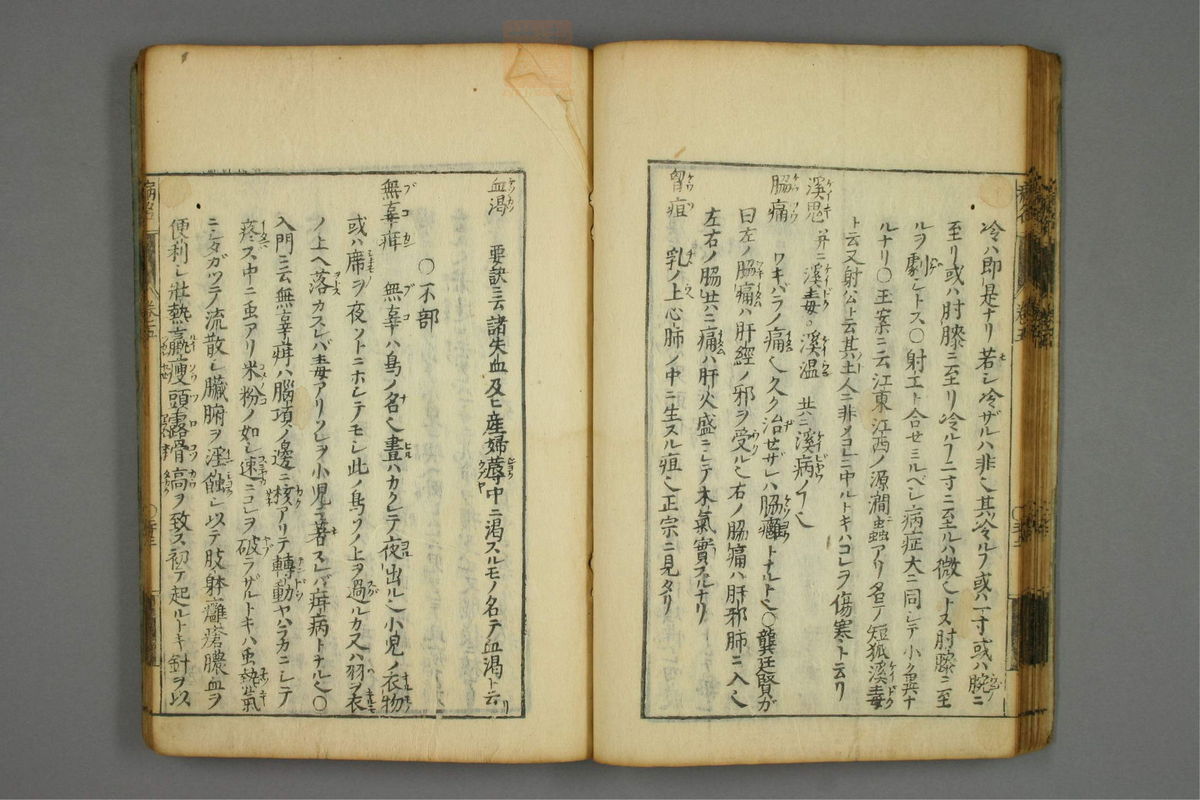 冷ハ即是ナリ若シ冷ザルハ非也其冷ルヿ或ハ一寸或ハ腕ニ
至リ或ハ肘膝ニ至リ冷ル一寸ニ至ルハ微也トス肘膝ニ至
ルヲ劇シトス〇射工ト合セミルベシ病症大ニ同シテ小ク異ナ
ルナリ〇王案ニ云江東江西ノ源澗虫アリ名テ短狐溪毒
ト云又射公ト云其土人ニ非ソコニ中ルトキハコレヲ傷寒ト云リ
溪鬼 并ニ溪毒。溪温 共ニ溪病ノヿ也
脇痛 ワキバラノ痛也久ク治せザレハ脇癰トナルト也〇龔廷賢ガ
曰左ノ脇痛ハ肝經ノ邪ヲ受ル也右ノ脇痛ハ肝邪肺ニ入也
左右ノ脇共ニ痛ハ肝火盛ニシテ木氣實スルナリ
疽 乳ノ上心肺ノ中ニ生スル疽也正宗ニ見タリ
血渇 要訣ニ云諸失血及ヒ産婦蓐中ニ渇スルモノ名テ血渇ト云リ
〇不部
無辜疳 無辜ハ鳥ノ名也晝ハカクレテ夜出ル也小児ノ衣物
或ハ席ヲ夜ソトニホシテモシ此ノ鳥ソノ上ヲ過ルカ又ハ羽ヲ衣
ノ上ヘ落カスレバ毒アリソレヲ小児ニ著スレバ疳病トナル也〇
入門ニ云無辜疳ハ腦項ノ邊ニ核アリテ轉動ヤハラカニシテ
疼ス中ニ虫アリ米粉ノ如シ速ニコレヲ破ラザルトキハ虫熱氣
ニシタガツテ流散シ臓腑ヲ淫蝕シ以テ肢躰癰瘡膿血ヲ
便利シ壯熱羸痩頭露骨高ヲ致ス初テ起ルトキ針ヲ以